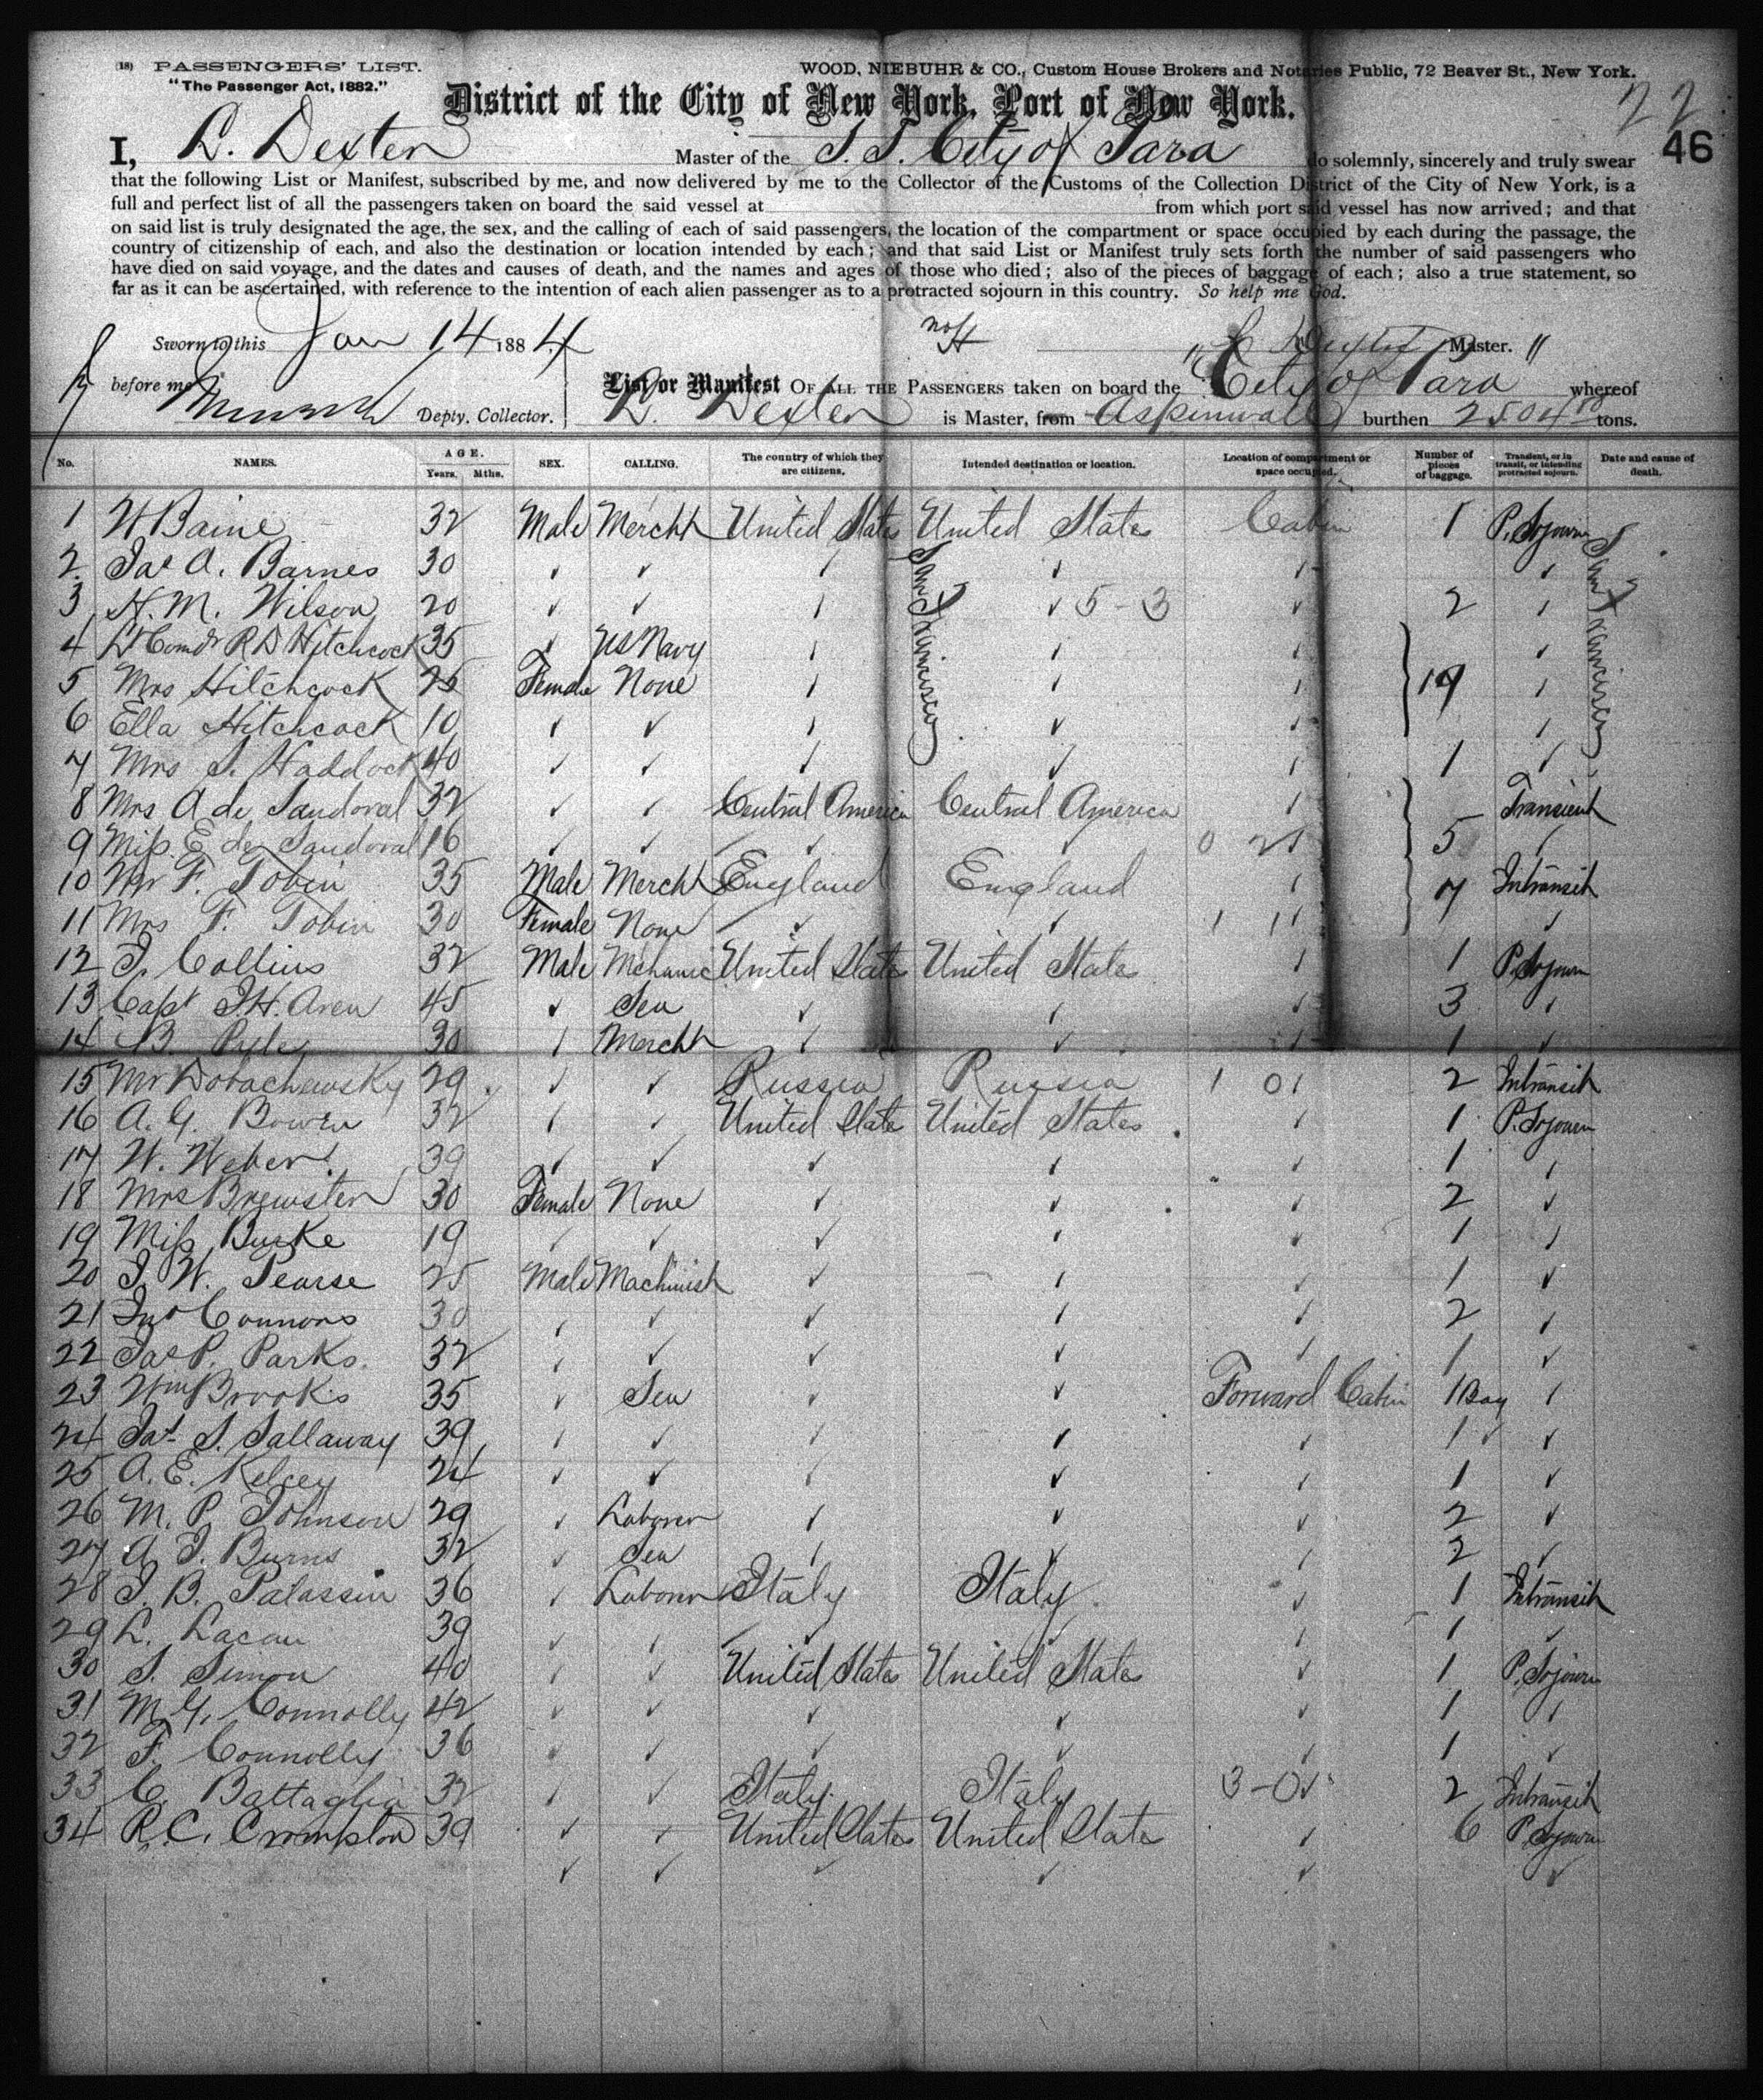 (18) PASSENGERS' LIST. WOOD, NIEBUHR & CO., Custom House Brokers and Notaries Public, 72 Beaver St., New York.
"The Passenger Act, 1882."
District of the City of New York, Port of New York.
22
46
I, L. Dexter Master of the S.S. City of Para do solemnly, sincerely and truly swear
that the following List or Manifest, subscribed by me, and now delivered by me to the Collector of the Customs of the Collection District of the City of New York, is a
full and perfect list of all the passengers taken on board the said vessel at from which port said vessel has now arrived; and that
on said list is truly designated the age, the sex, and the calling of each of said passengers, the location of the compartment or space occupied by each during the passage, the
country of citizenship of each, and also the destination or location intended by each; and that said List or Manifest truly sets forth the number of said passengers who
have died on said voyage, and the dates and causes of death, and the names and ages of those who died; also of the pieces of baggage of each; also a true statement, so
far as it can be ascertained, with reference to the intention of each alien passenger as to a protracted sojourn in this country. So help me God.
Sworn to this Jan 14 1884 L Dexter Master.
before me Depty. Collector.
List or Manifest OF ALL THE PASSENGERS taken on board the "City of Para" whereof
L. Dexter is Master, from Aspinwall burthen 2504 tons.
No. NAMES. AGE. Years. Mths. SEX. CALLING. The country of which they are citizens. Intended destination or location. Location of compartment or space occupied. Number of pieces of baggage. Transient, or in transit, or intending protracted sojourn. Date and cause of death.
San Francisco
San Francisco
1 W Baine 32 Male Mercht United States United States Cabin 1 P. Sojourn
2 Jas A. Barnes 30 ✓ ✓
3 H. M. Wilson 20 ✓ ✓ ✓ 5-3 ✓ 2
4 Lt Comdr R D Hitchcock 35 ✓ US Navy
5 Mrs Hitchcock 25 Female None 19
6 Ella Hitchcock 10 ✓ ✓
7 Mrs S. Haddock 40 ✓ ✓ ✓ ✓ 1 ✓
8 Mrs A de Sandoval 32 ✓ ✓ Central America Central America Transient
9 Miss E de Sandoval 16 ✓ ✓ ✓ ✓ 0 2 5
10 Mr F. Tobin 35 Male Mercht England England 7 Intransit
11 Mrs F. Tobin 30 Female None ✓ 1 1 ✓
12 J. Collins 32 Male Mechanic United States United States 1 P. Sojourn
13 Capt J. H. Aven 45 ✓ Sea ✓ 3
14 B. Pyle 30 Mercht 1 ✓
15 Mr Dobachewsky 29 ✓ ✓ Russia Russia 1 0 2 Intransit
16 A. G. Bowen 32 ✓ United States United States 1 P. Sojourn
17 W. Weber 39 ✓ ✓ ✓ ✓ 1
18 Mrs Brewster 30 Female None ✓ ✓ 2 ✓
19 Miss Burke 19 ✓ ✓ ✓ 1
20 J W. Pearse 25 Male Machinist ✓ 1 ✓
21 Jno Connors 30 ✓ ✓ 2 ✓
22 Jas P. Parks 32 ✓ ✓ ✓ 1 ✓
23 Wm Brooks 35 ✓ Sea ✓ Forward Cabin 1 Bag
24 Jas S. Sallaway 39 ✓ ✓ 1 ✓
25 A. E. Kelsey 24 ✓ ✓ ✓ 1 ✓
26 M. P. Johnson 29 ✓ Laborer ✓ 2 ✓
27 A. J. Burns 32 ✓ Sea ✓ 2 ✓
28 J. B. Palassin 36 ✓ Laborer Italy Italy ✓ 1 Intransit
29 L. Lacau 39 ✓ ✓ 1
30 S. Simon 40 ✓ United States United States ✓ 1 P. Sojourn
31 M. G. Connolly 42 ✓ ✓ ✓ ✓ 1
32 F. Connolly 36 ✓ ✓ ✓ ✓ 1 ✓
33 C. Battaglia 32 Italy Italy 3-0 2 Intransit
34 R. C. Crompton 39 ✓ ✓ United States United States ✓ 6 P. Sojourn
✓ ✓ ✓ ✓ ✓ ✓